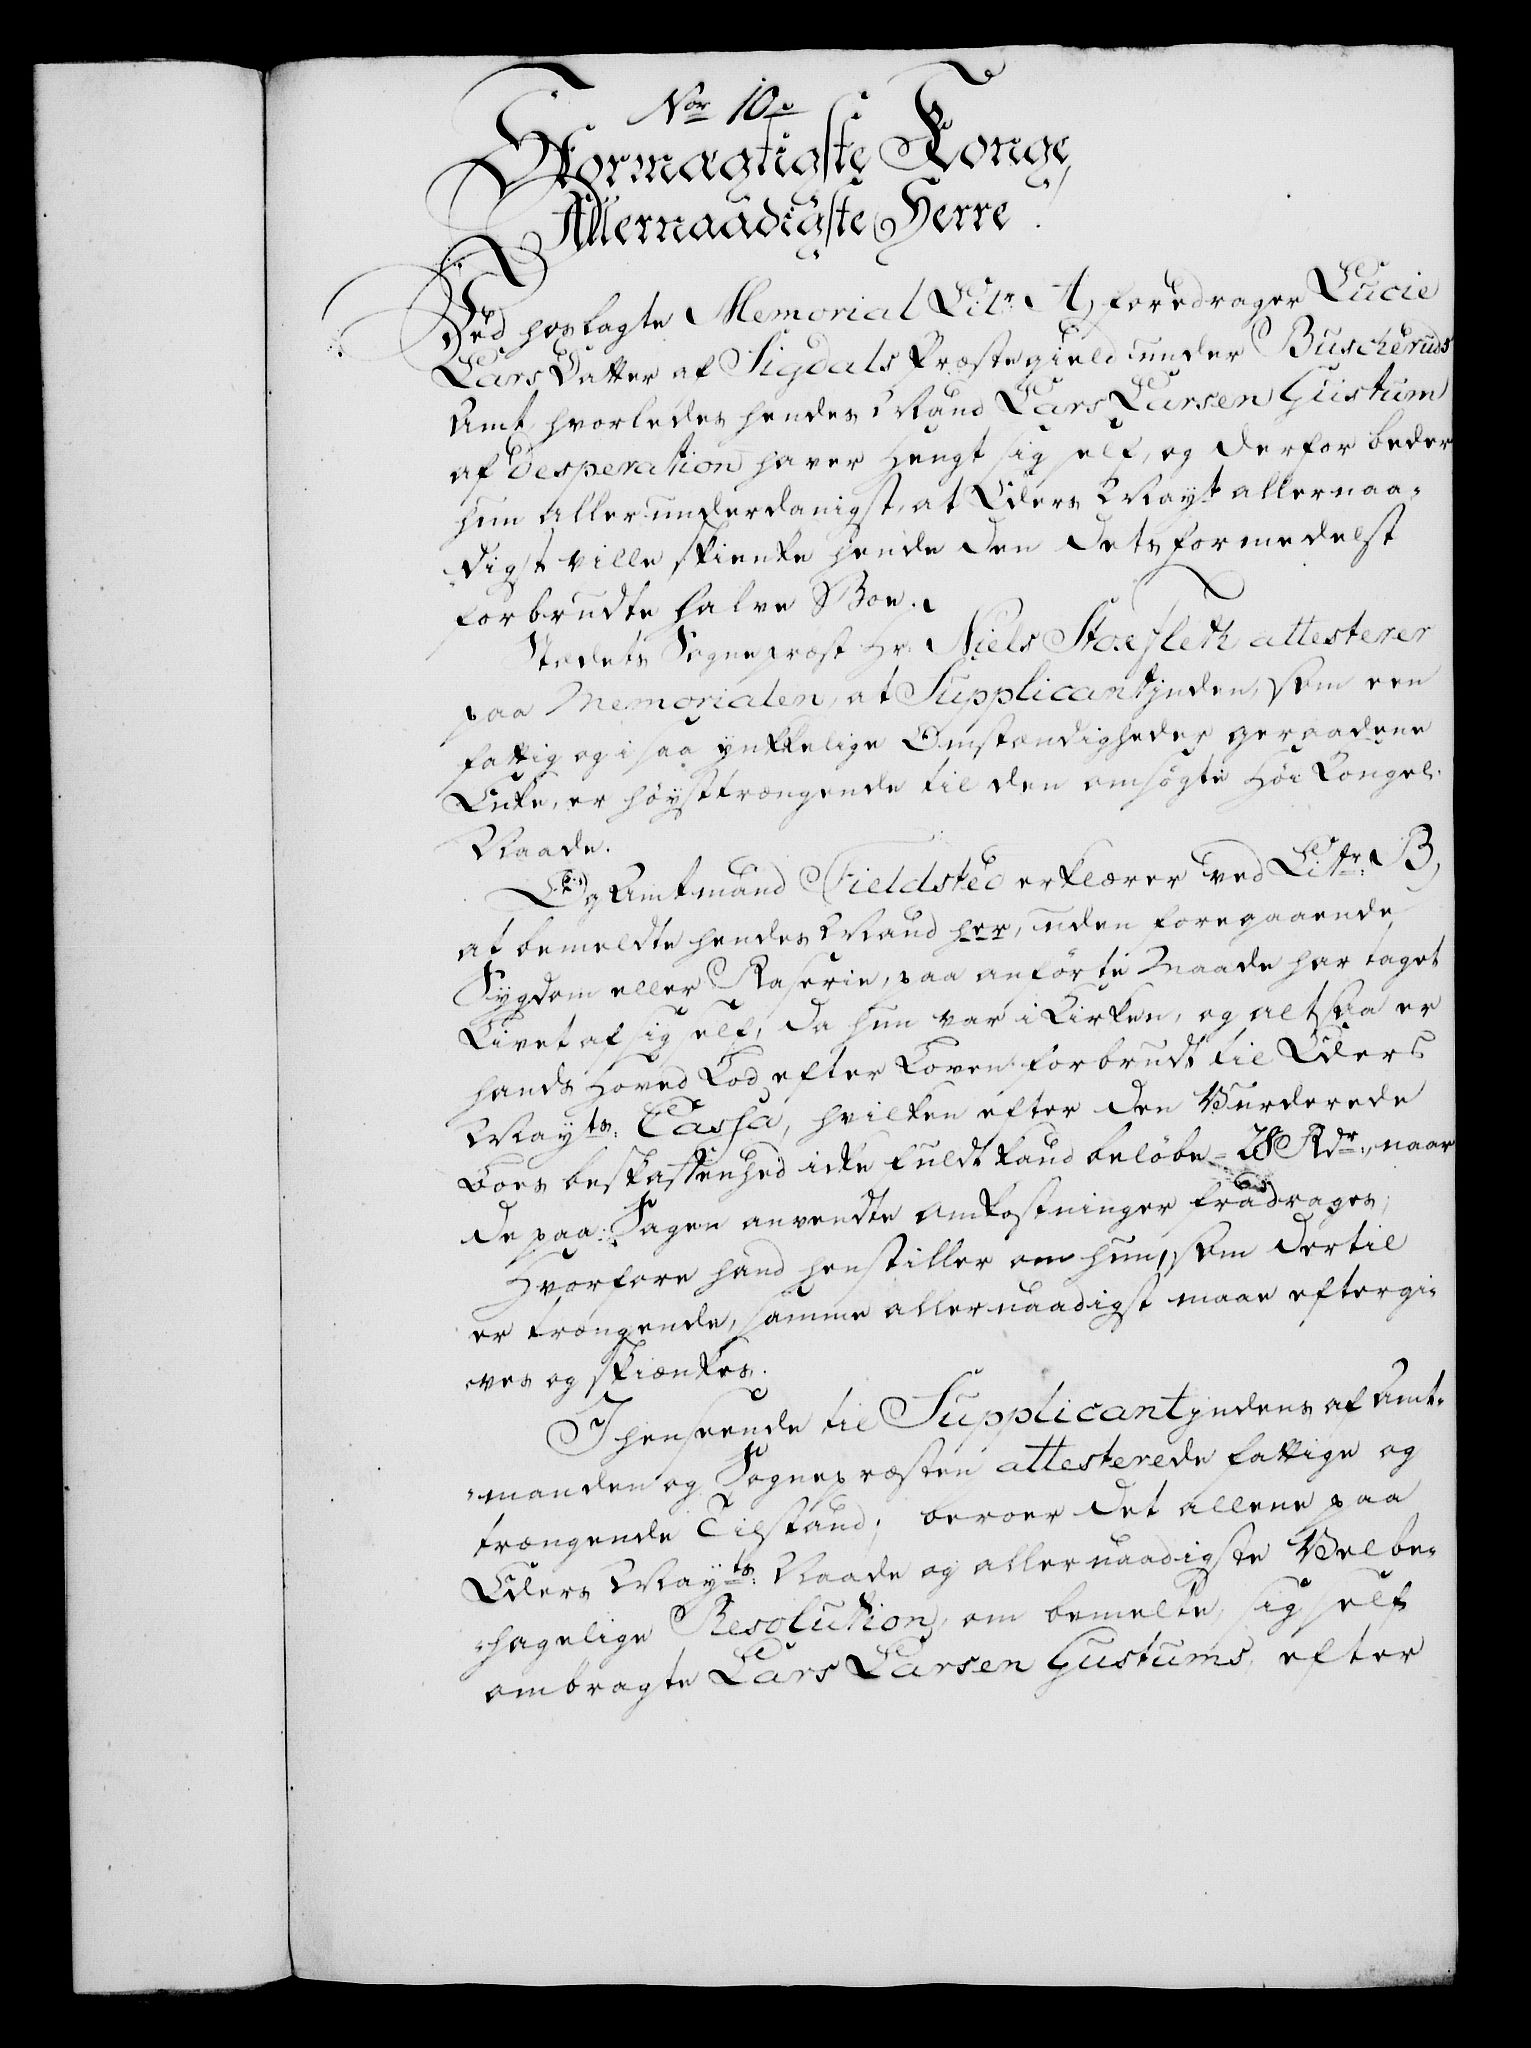 No͞r 10.
Stormægtigste Konge,
Allernaadigste Herre.
Ved hoslagte Memorial Litr: A, foredrager Lucie
Lars Datter af Sigdals Præstegield under Buscheruds
Amt hvorledes hendes Mand Lars Larsen Gustum
af Desperation haver Hengt sig self, og derfor beder
hun allerunderdanigst, at Eders Mayt allernaa-
digst ville skienke hende den dets formedelst
forbrudte halve Boe.
Stædets Sognepræst Hr: Niels Stoefleth attesterer
paa Memorialen, at Supplicantjnden, som een
fattig og i saa ynkkelige Omstændigheder geraadene
Enke, er høysttrængende til den omsøgte Høi Kongel:
Naade.
Og Amtmand Fieldsted erklærer ved Litr: B,
at bemeldte hendes Mand her, uden foregaaende
Sygdom eller Raserie, paa anførte Maade har taget
Livet af sig self, da hun var i Kirken, og altsaa er
hands Hoved Lod efter Loven forbrudt til Eders
Mayts: Cassa, hvilken efter den Vurderede
Boes beskaffenhed icke fuldt kand beløbe - 28 Rdr:, naar
de paa Sagen anvendte omkostninger fradrages;
Hvorfore hand henstiller om hun, som dertil
er trængende, samme allernaadigst maae eftergi-
ves og skiænkes.
I henseende til Supplicantjndens af Amt-
manden og Sognepræsten attesterede fattige og
trængende Tilstand; beroer det allene paa
Eders Mayts: Naade og allernaadigste Velbe-
hagelige Resolution, om bemelte, sig self
ombragte Lars Larsen Gustums, efter